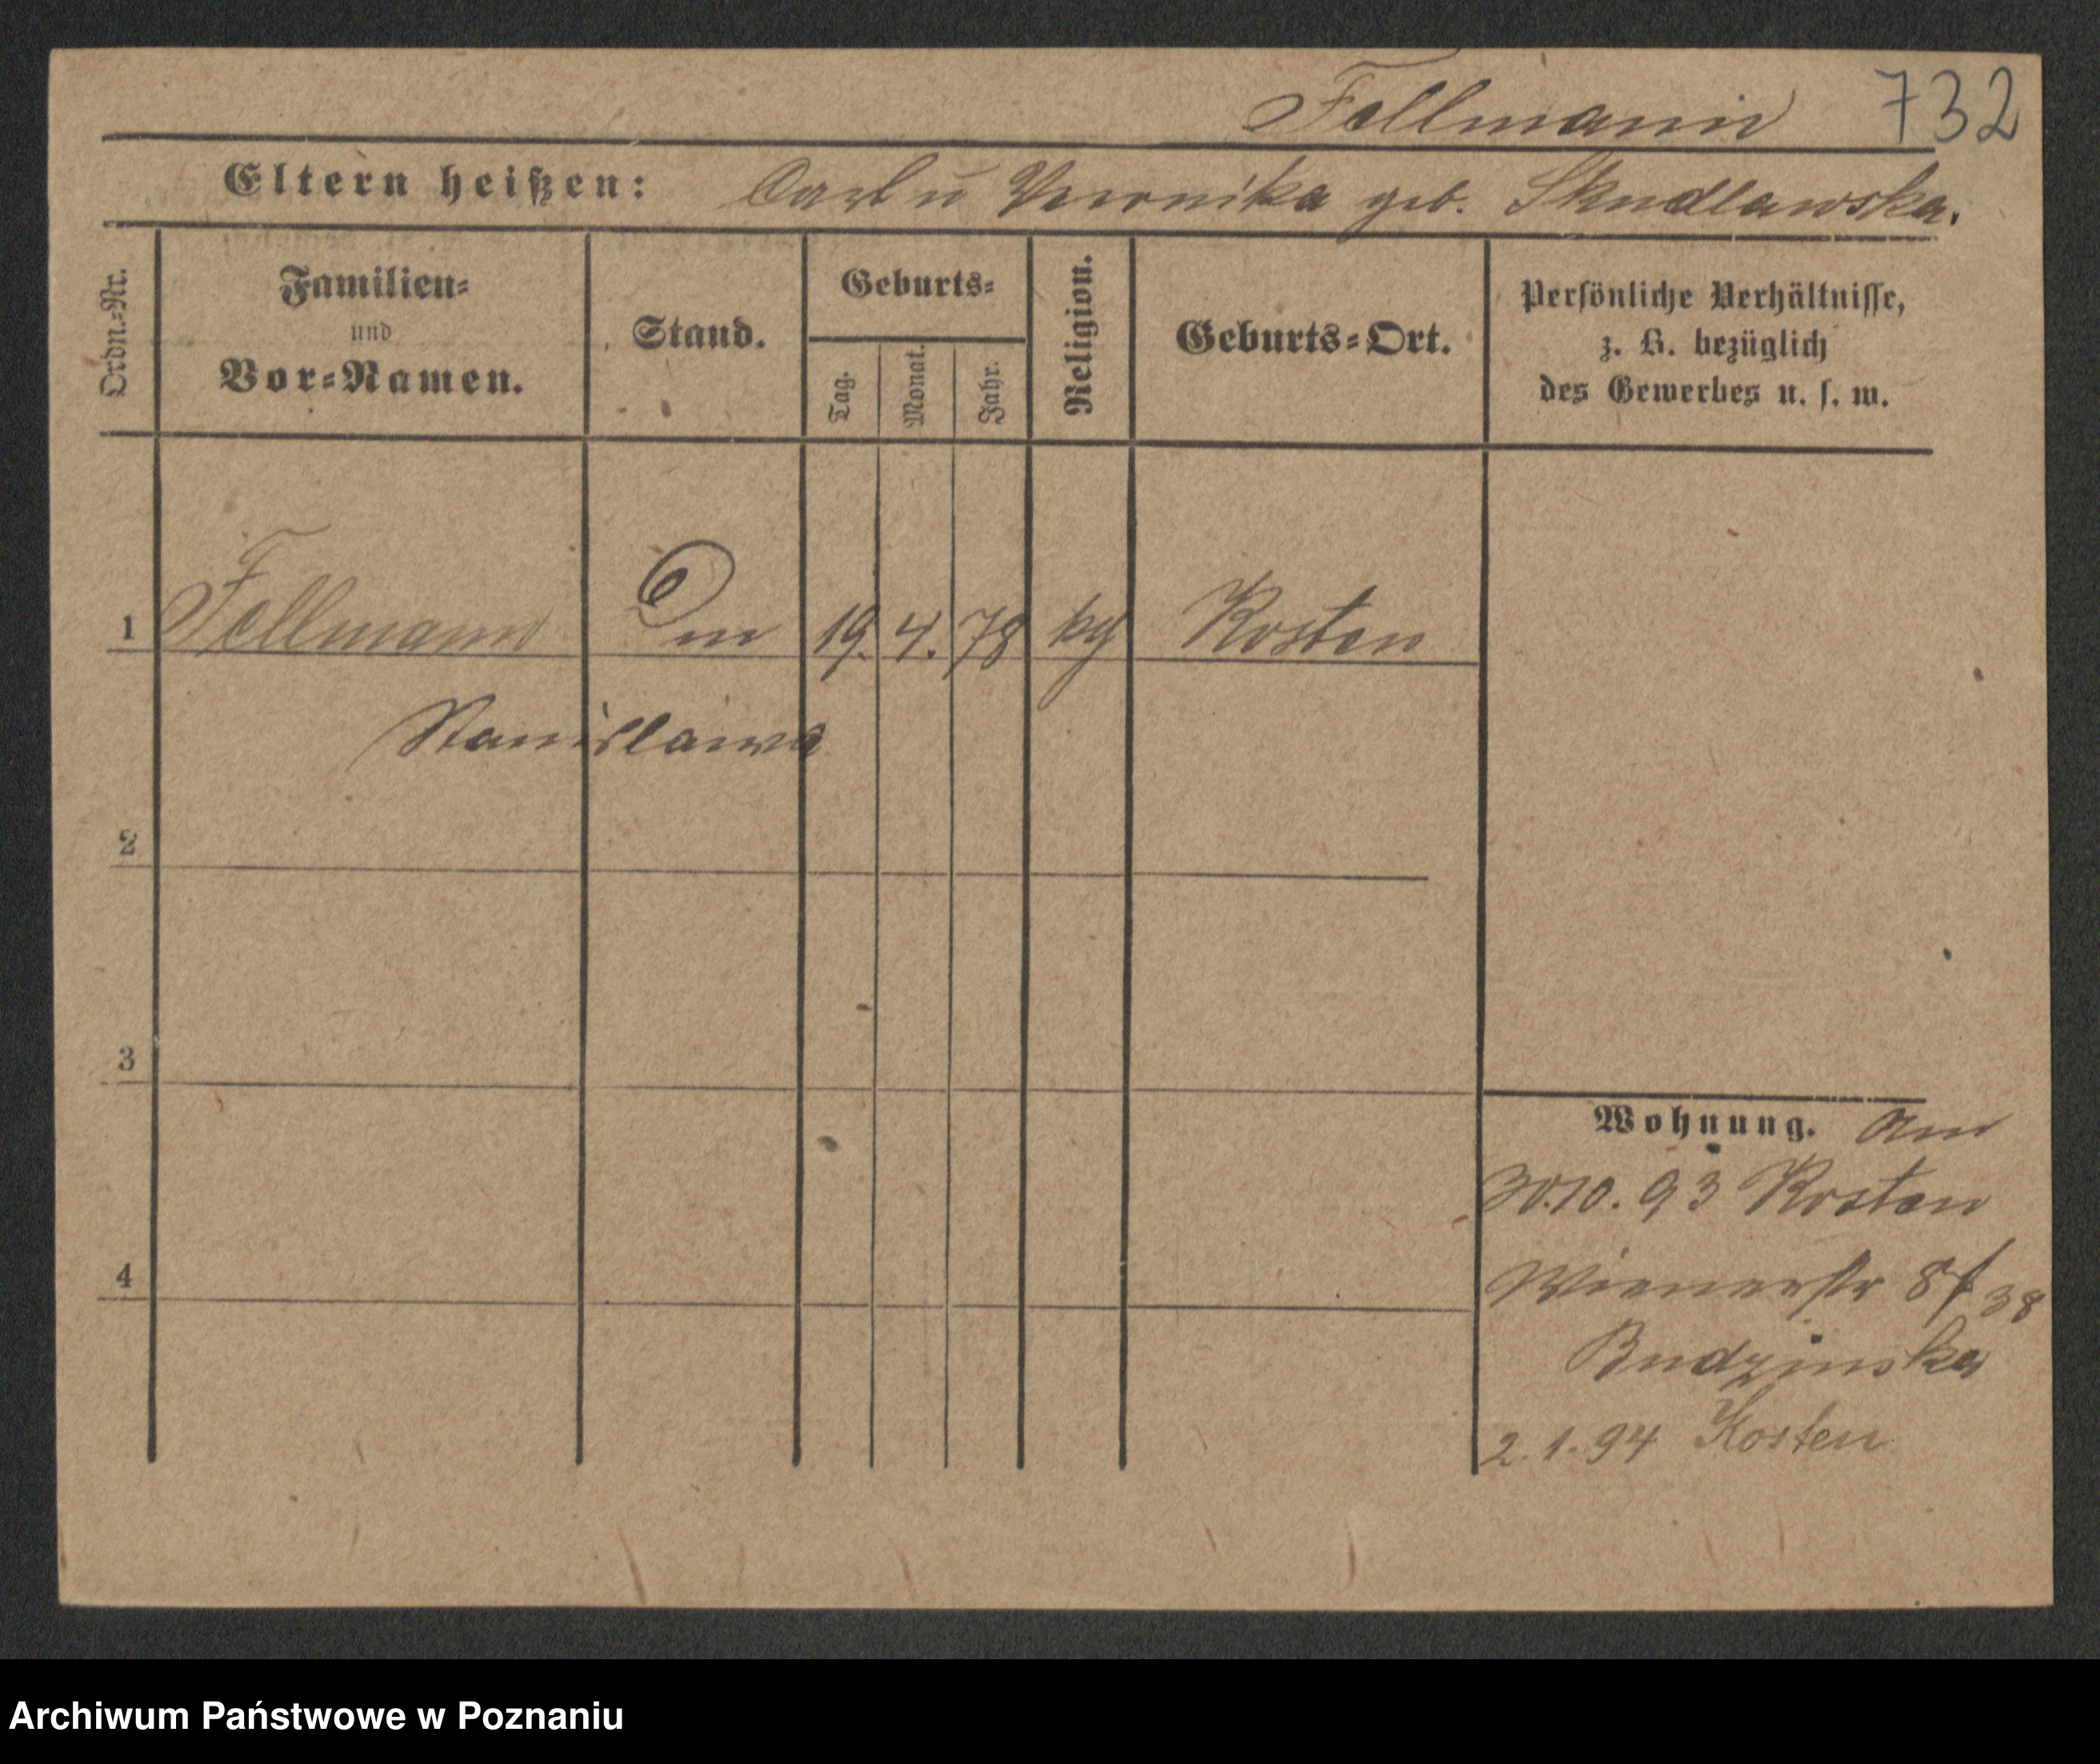 Fellmann 732
Eltern heißen: Carl u Veronika geb. Skudlawska.
Ordn.-Nr.
Familien-
und
Vor-Namen.
Stand.
Geburts-
Tag.
Monat.
Jahr.
Religion.
Geburts-Ort.
Persönliche Verhältnisse,
z. B. bezüglich
des Gewerbes u. s. w.
1 Fellmann 19. 4. 78 Kosten
Stanislawa
2
3
4
Wohnung. Am
30.10.93 Kosten
Wienerstr 8
Budzinska
2.1.94 Kosten
Archiwum Państwowe w Poznaniu